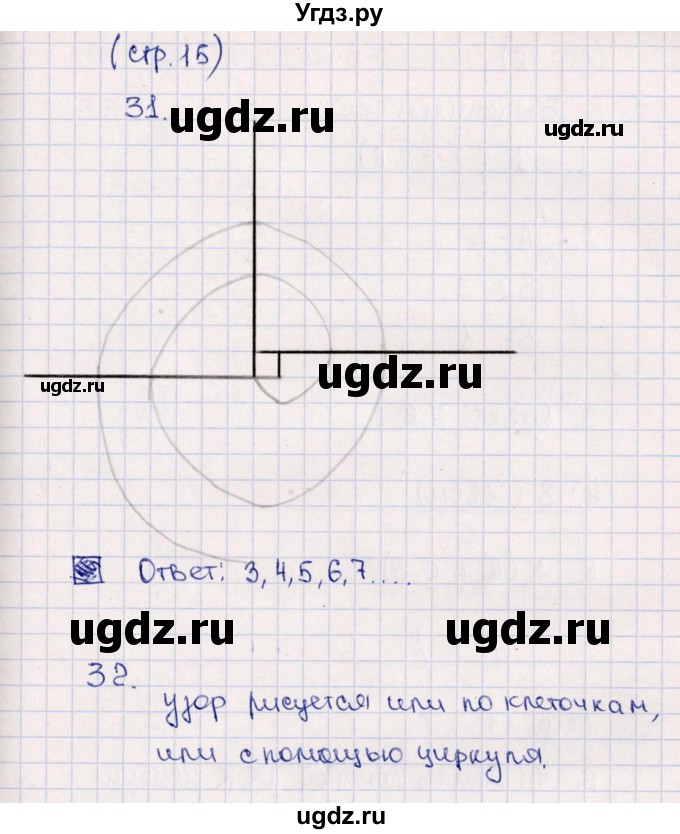 Угдз.ру
(стр. 15)
31.
ugdz.ru
ugdz.ru
ugdz.ru
ugdz.ru
Ответ: 3, 4, 5, 6, 7....
ugdz.ru
ugdz.ru
32.
узор рисуется или по клеточкам,
или с помощью циркуля.
ugdz.ru